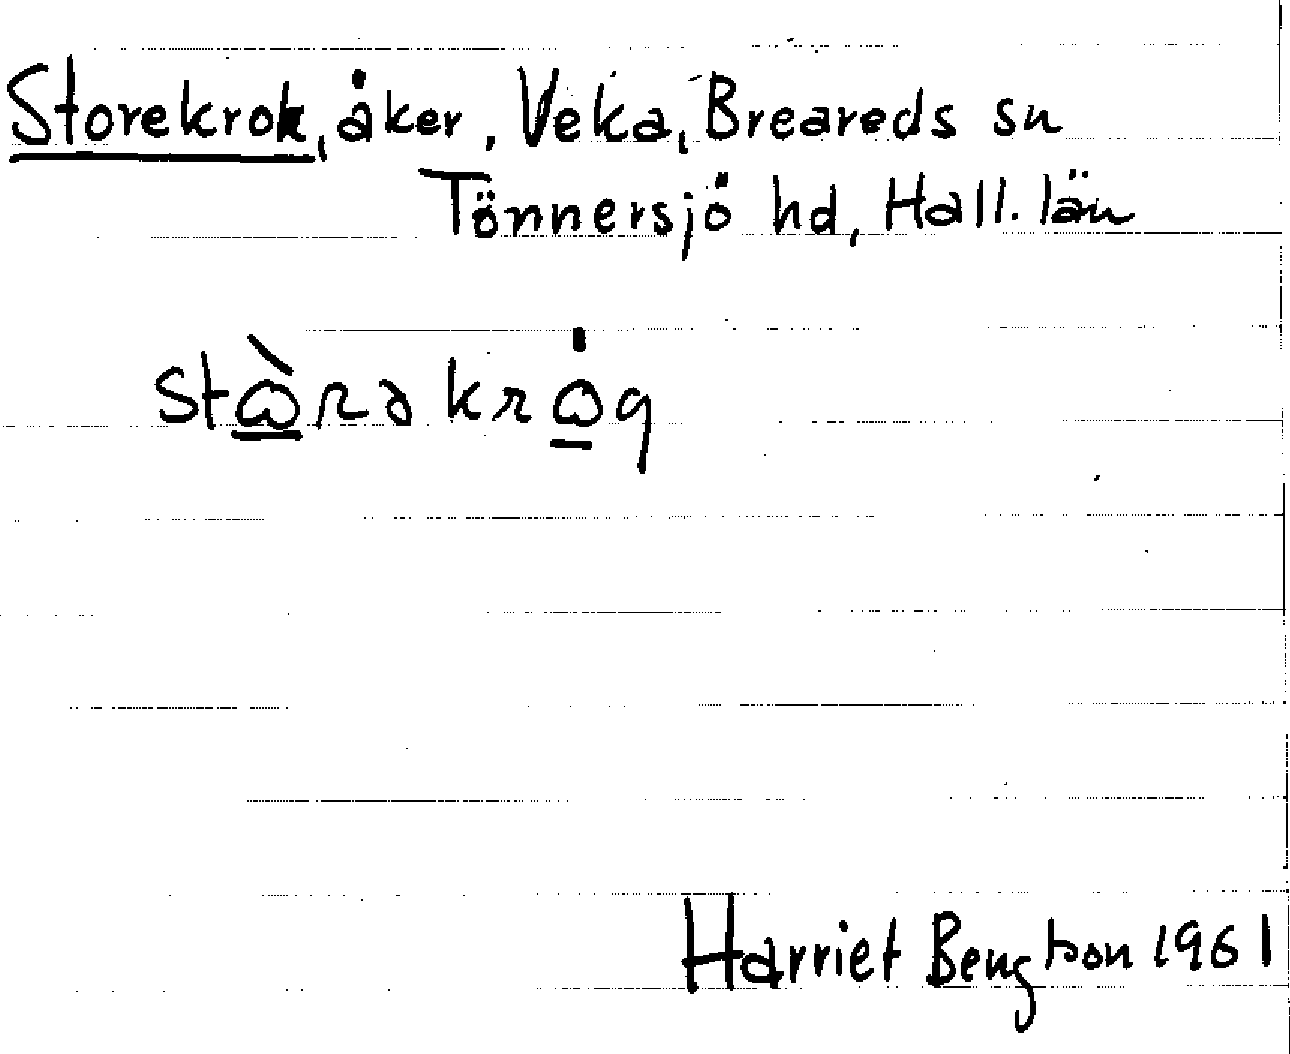 Storekrok, åker, Veka, Breareds sn
Tönnersjö hd, Hall. län
stɷ̀rə krɷ́g
Harriet Bengtson 1961